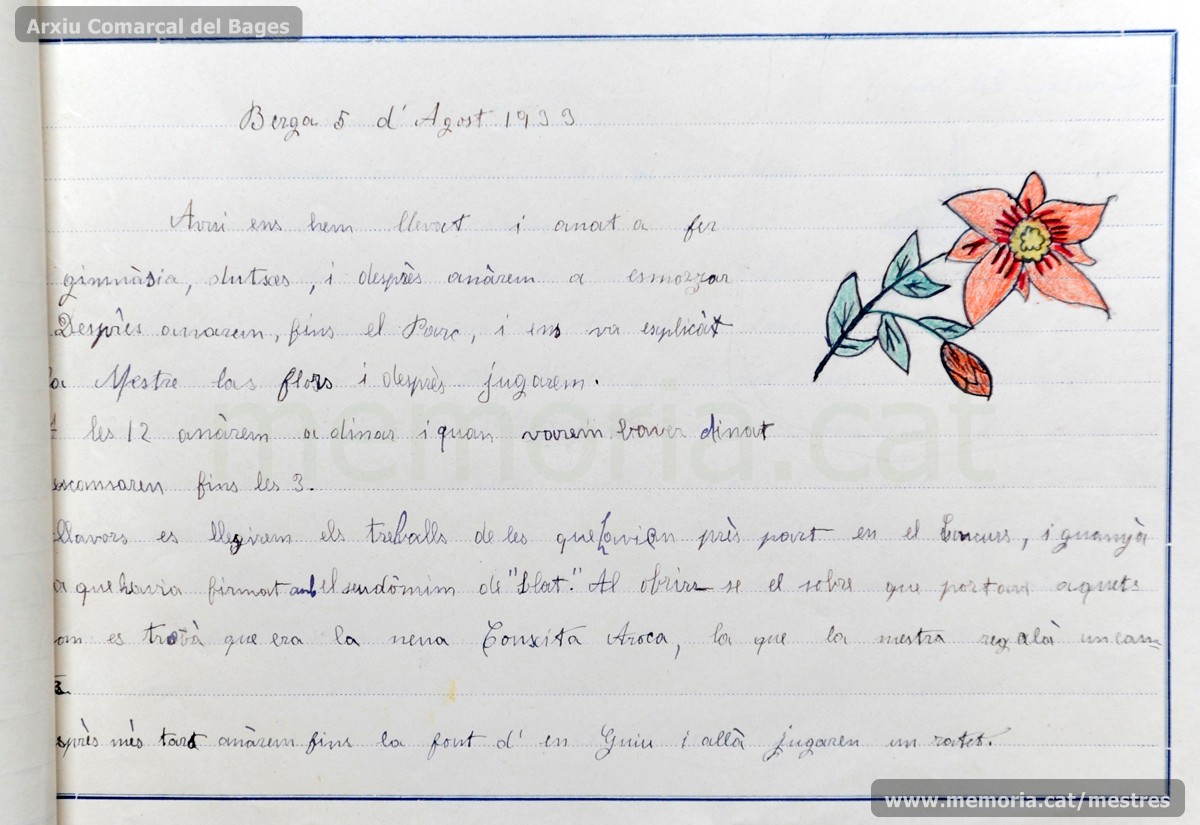 Arxiu Comarcal del Bages
Berga 5 d' Agost 1933
Avui ens hem llevat i anat a fer
gimnàsia, dutxes, i desprès anàrem a esmorzar
Desprès anarem, fins el Parc, i ens va explicàt
la Mestre las flors i desprès jugarem.
les 12 anàrem a dinar i quan varem haver dinat
escansaren fins les 3.
llavors es llegirem els treballs de les que havien près part en el Concurs, i guanyà
a que havia firmat amb el seudònim de "Blat." Al obrirse el sobre que portava aquets
om es trobà que era la nena Conxita Aroca, la que la mestra regalà un cam=
sprès més tard anàrem fins la font d' en Guiu i allà jugaren un ratet.
memoria.cat
www.memoria.cat/mestres